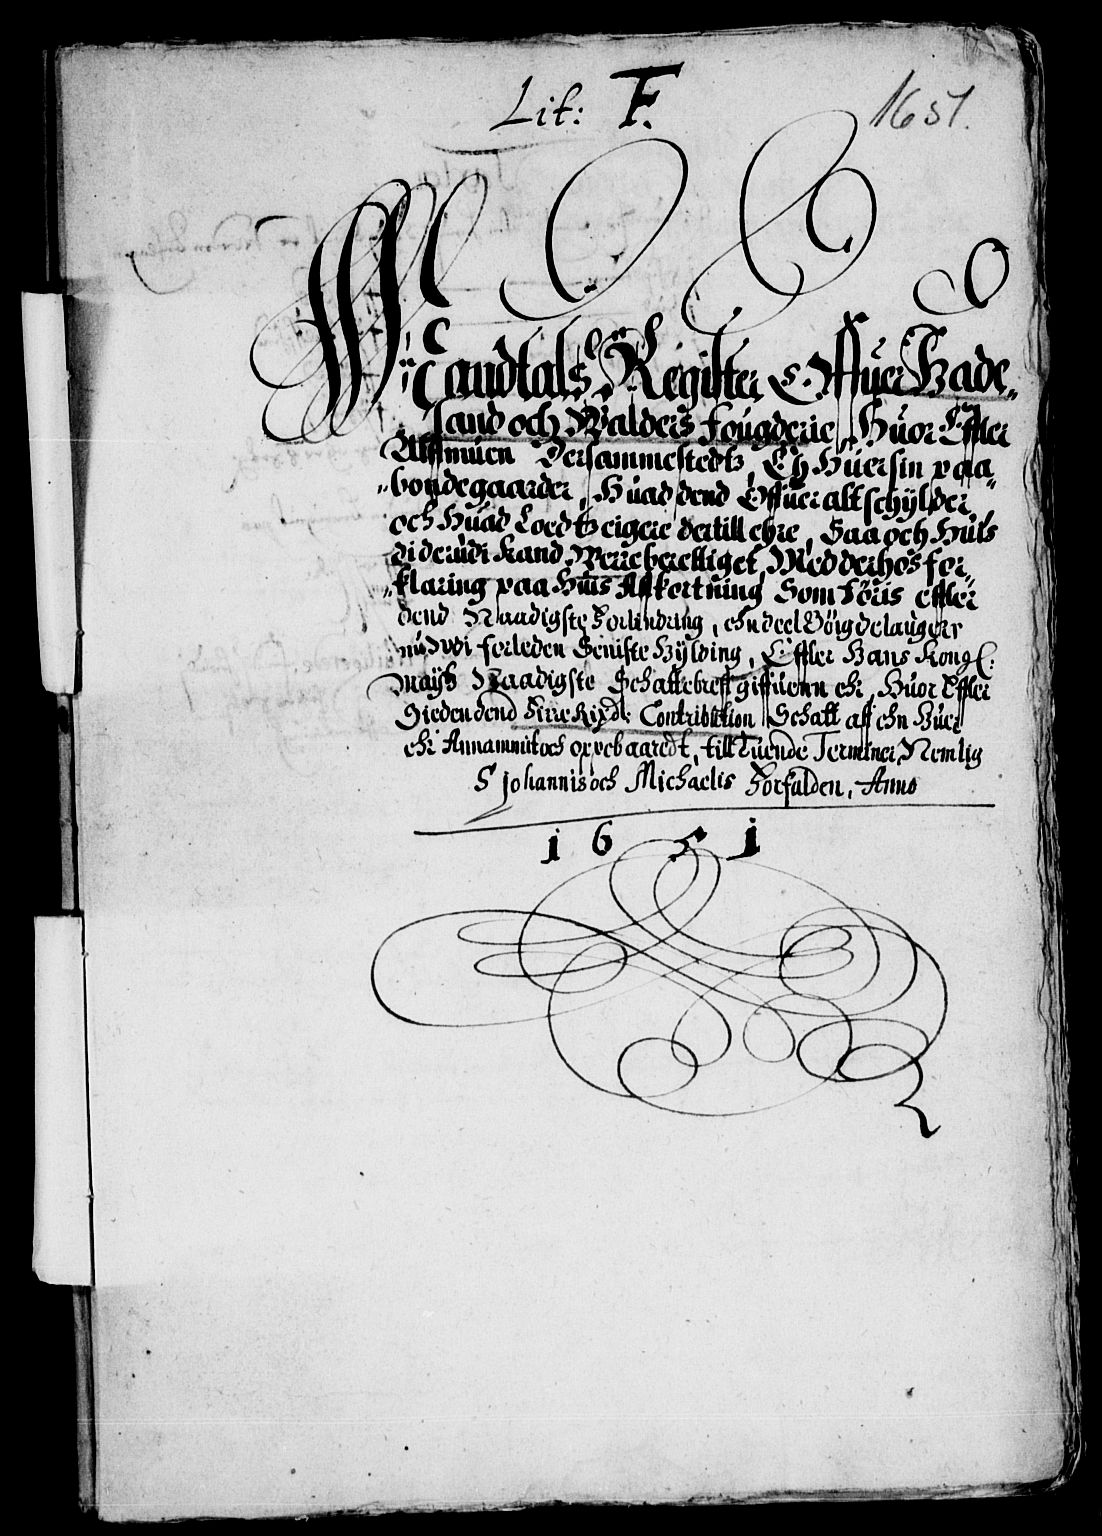 Lit: F.
1651.
Mandtals Register Offuer Hade„
land och Walders Fougderie, Huor Effter
Allmuen Dersammestedtz, Eh Huersin paa
„bondegaarder, Huad dend Offuer alt schylder
och Huad Loedtz eigere dertill ehre, Saa och Huis
di derudi kand Werre berettiget, Med derhos for„
„klaring paa Huis Affkortning Som Føris effter
dend Naadigste Forlindring, ehn deel Bøigdelaugerr
nu udi forleden Seniste Hylding, Effter Hans Kongl:
Maytz Naadigste Schattebreff giffuenn ehr, Huor Effter
Sieden dend Firre Rixdr Contribution Schatt aff ehn Huer
ehr Annammit och oppebaaredt, till Tuende Terminer, Nemlig
S Johannis och Michaelis Forfalden, Anno
1651